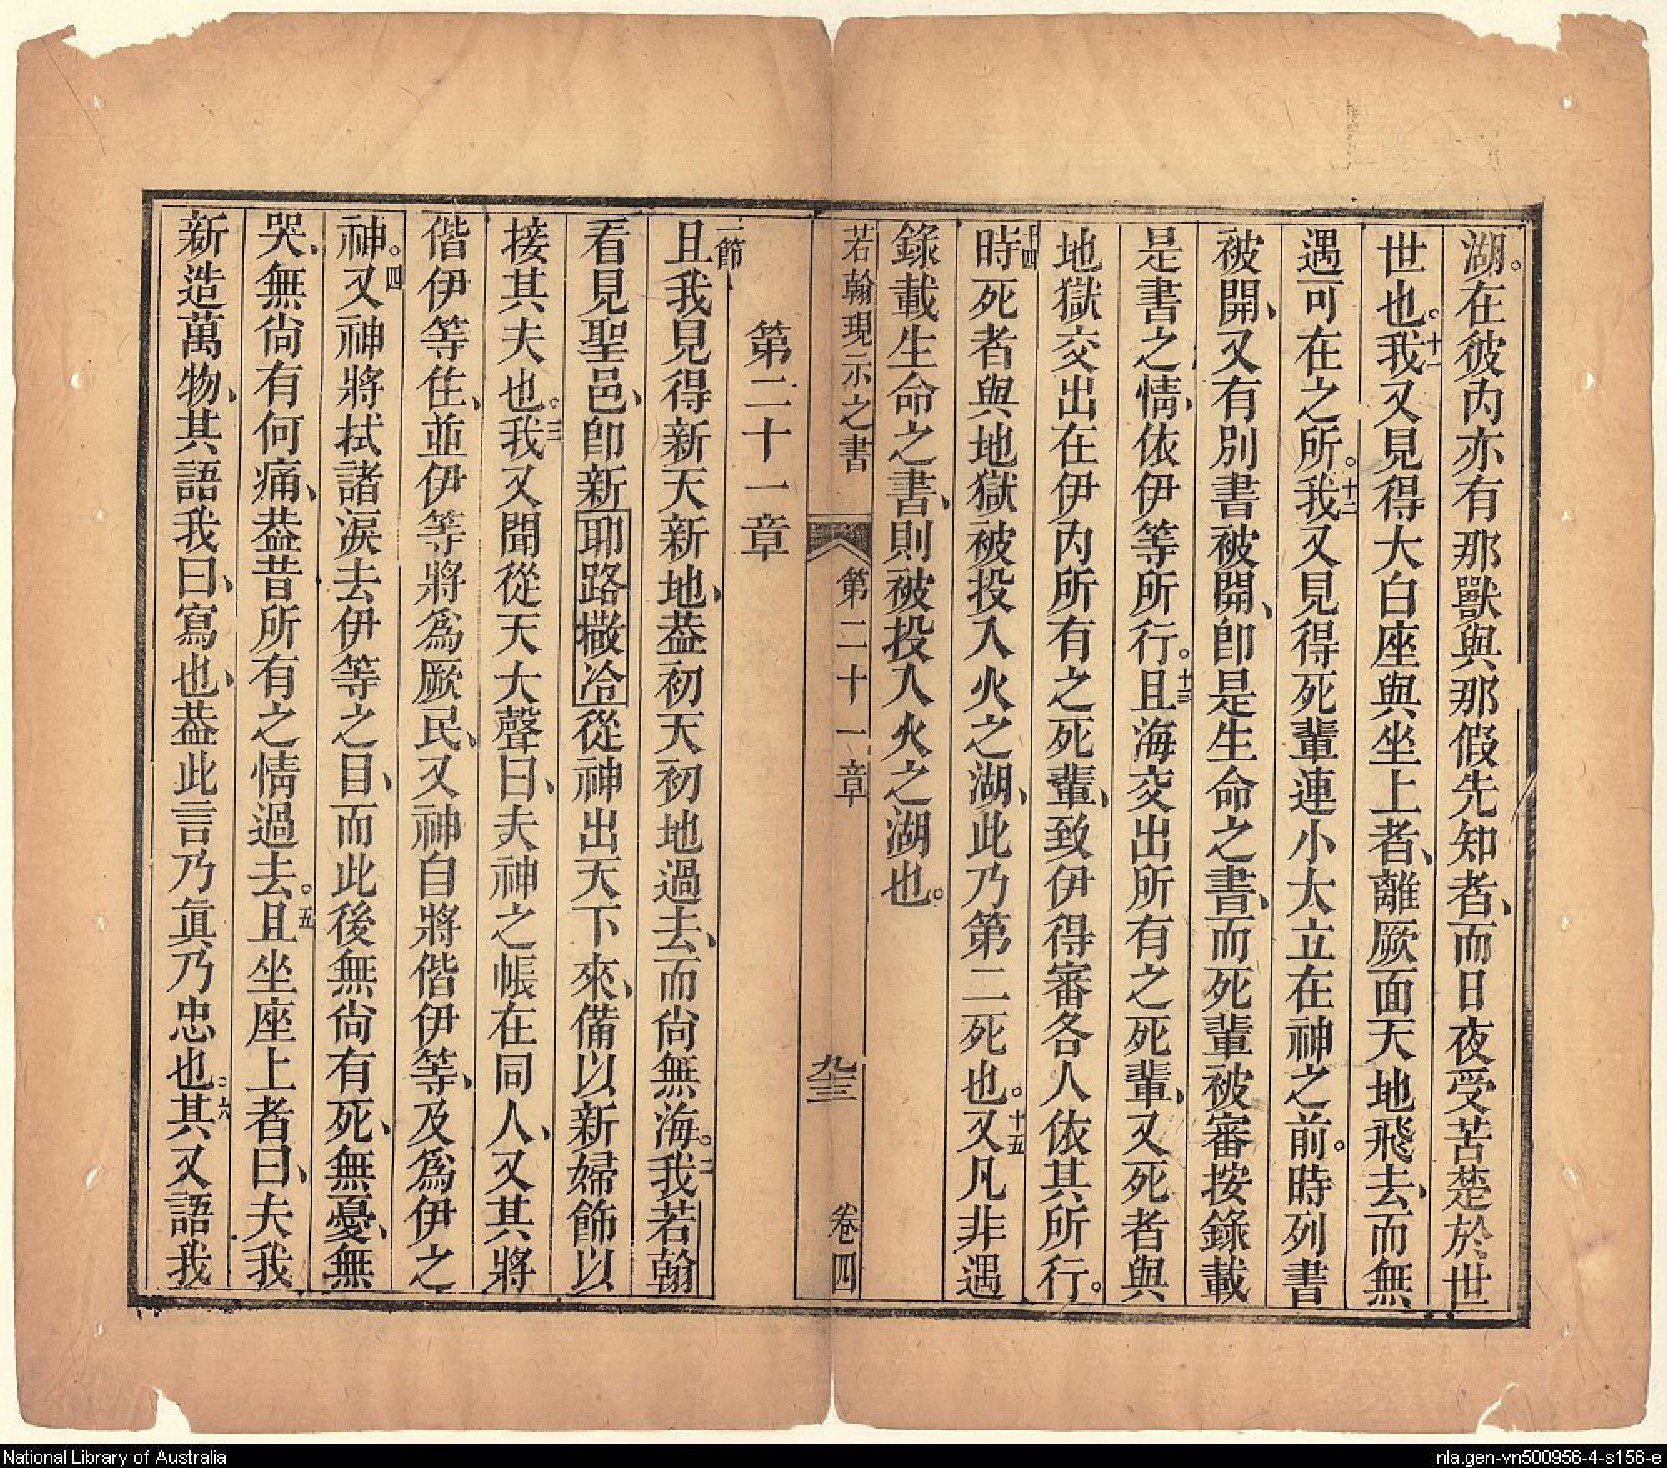 湖。在彼內亦有那獸與那假先知者、而日夜受苦楚於世
世也。十一我又見得大白座與坐上者、離厥面天地飛去、而無
遇可在之所。十二我又見得死輩連小大立在神之前。時列書
被開、又有別書被開、卽是生命之書、而死輩被審按錄載
是書之情、依伊等所行。十三且海交出所有之死輩、又死者與
地獄交出在伊內所有之死輩、致伊得審各人依其所行。
十四時死者與地獄被投入火之湖、此乃第二死也。十五又凡非遇
錄載生命之書、則被投入火之湖也。
若翰現示之書 第二十一章 九三 卷四
第二十一章
一節且我見得新天新地、葢初天初地過去、而尙無海。二我若翰
看見聖邑、卽新耶路撒冷從神出天下來、備以新婦飾以
接其夫也。三我又聞從天大聲曰、夫神之帳在同人、又其將
偕伊等住、並伊等將爲厥民、又神自將偕伊等、及爲伊之
神。四又神將拭諸淚去伊等之目、而此後無尙有死、無憂、無
哭、無尙有何痛、葢昔所有之情過去。五且坐座上者曰、夫我
新造萬物、其語我曰、寫也、葢此言乃眞乃忠也。六其又語我
National Library of Australia
nla.gen-vn500956-4-s156-e